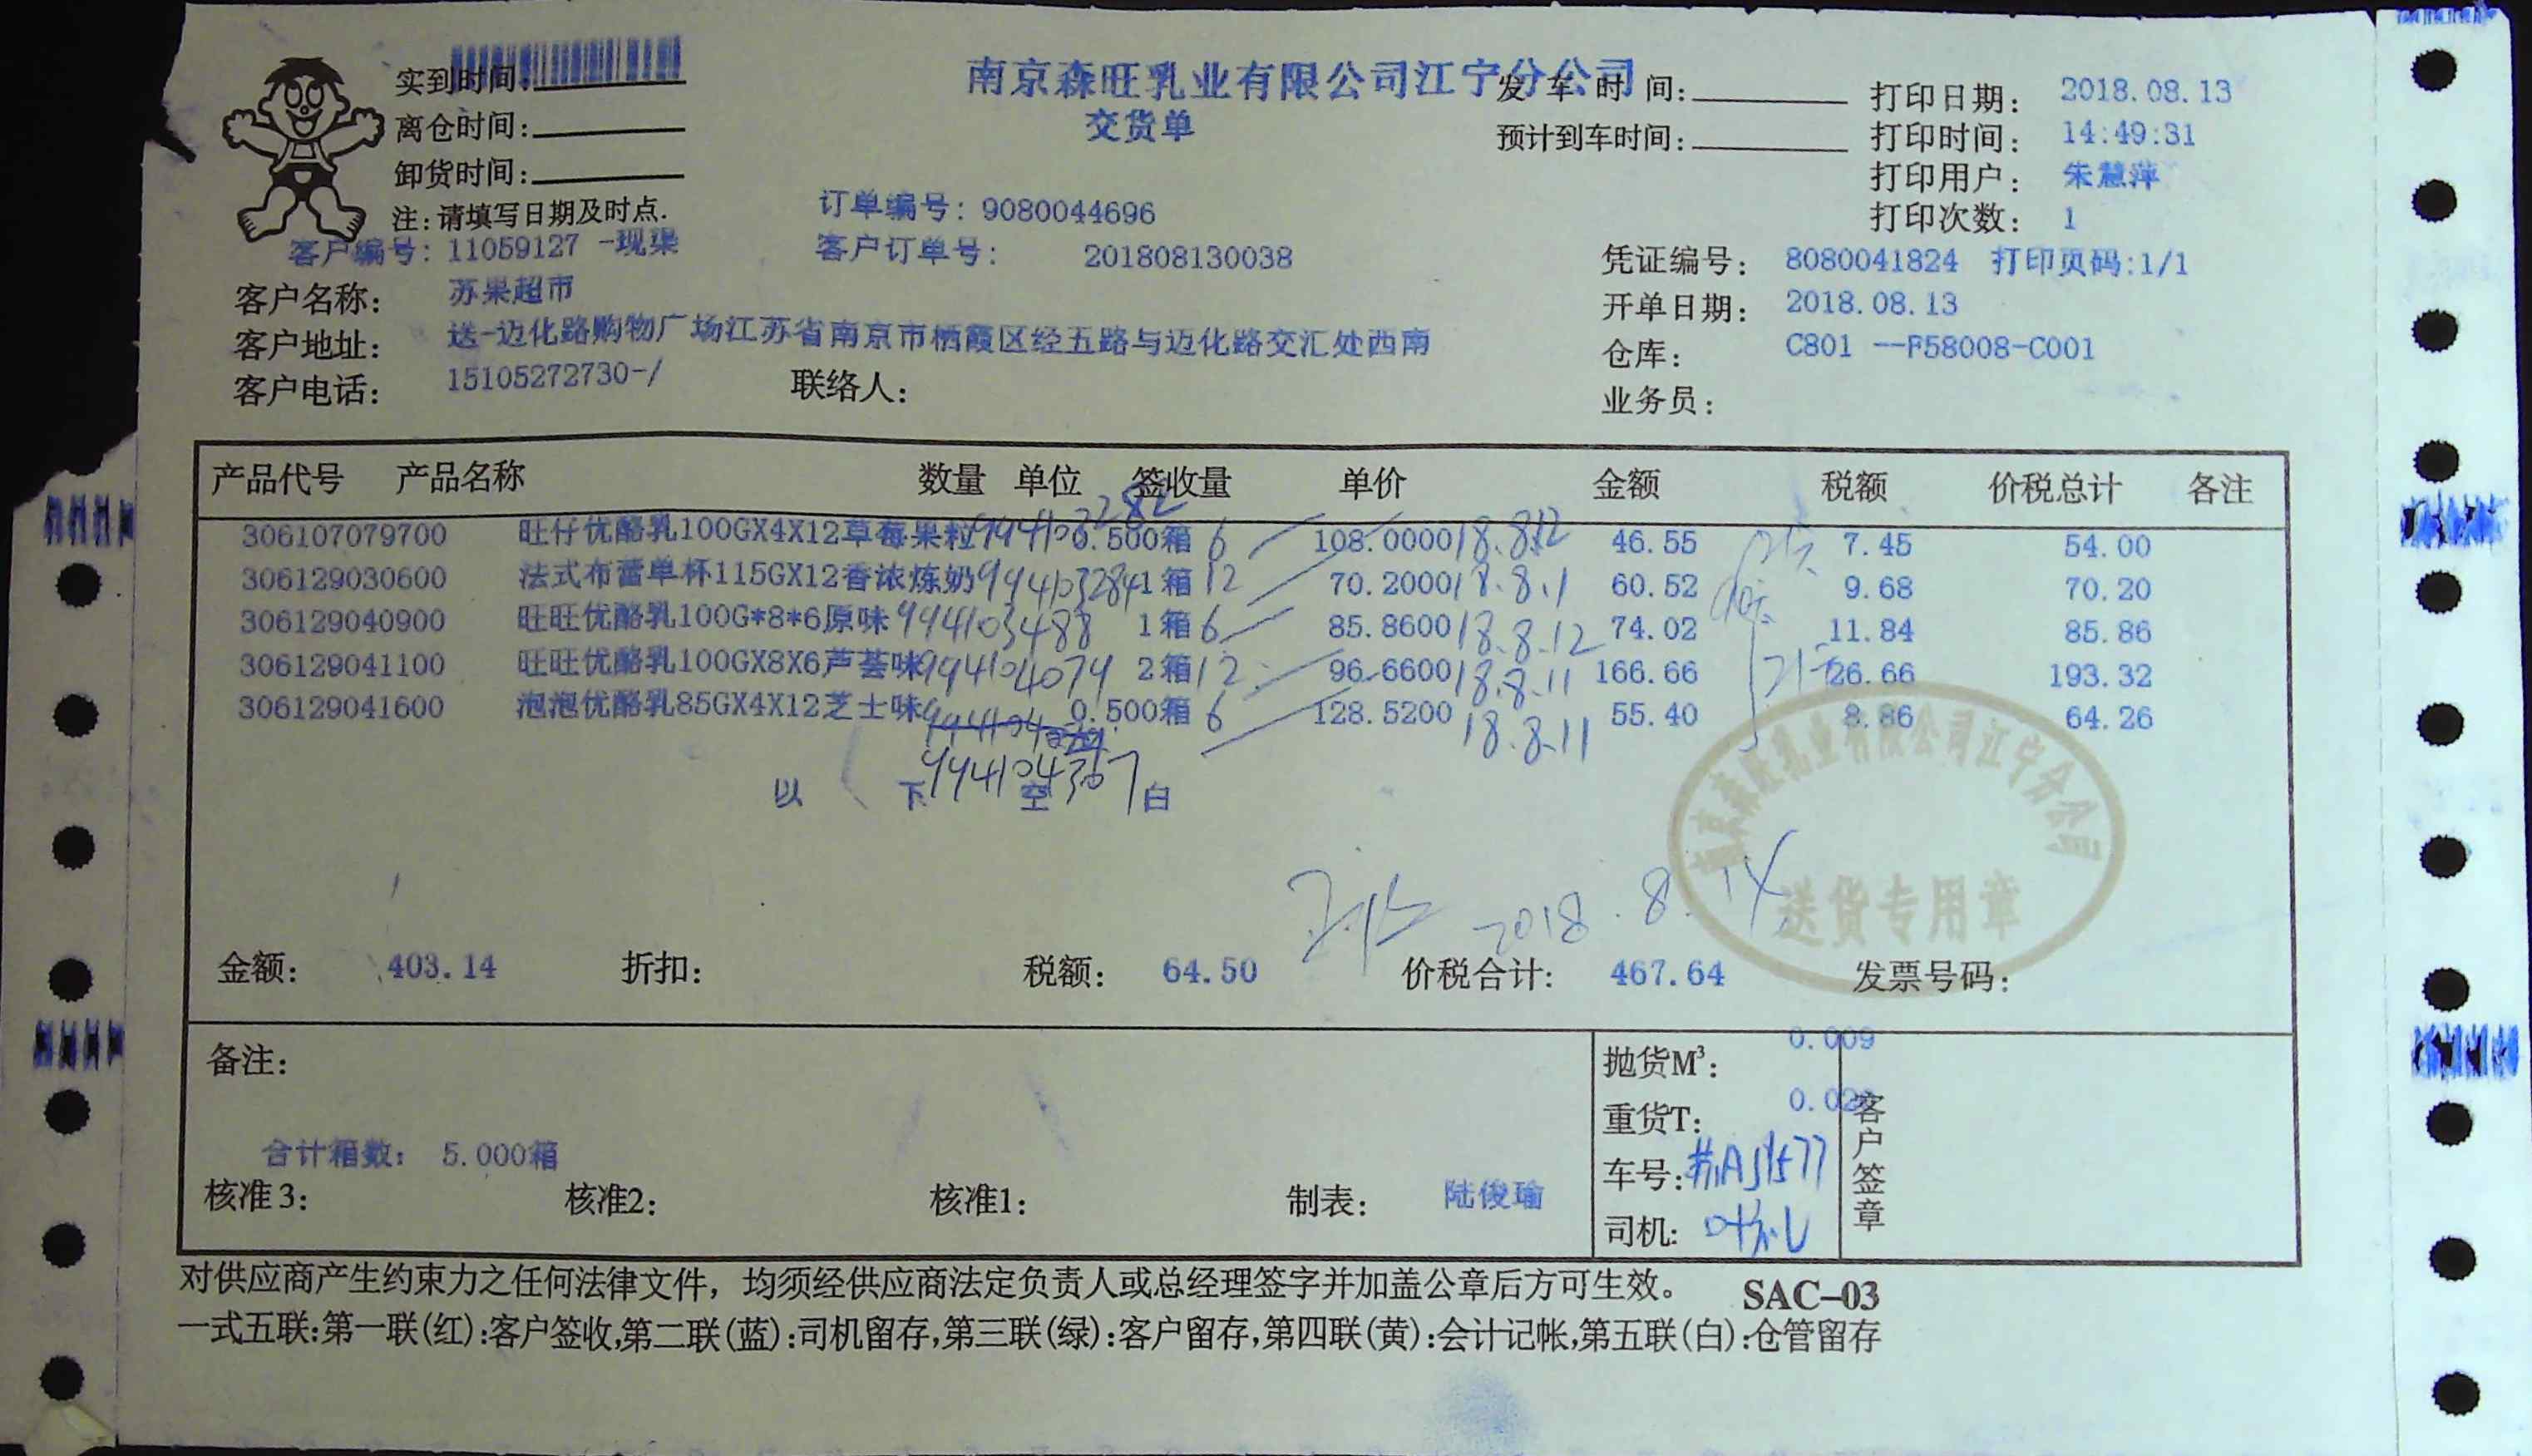 南京森旺乳业有限公司江宁分公司
交货单
实到时间:
离仓时间:
卸货时间:
注:请填写日期及时点.
发 车 时 间:
预计到车时间:
打印日期: 2018.08.13
打印时间: 14:49:31
打印用户: 朱慧萍
打印次数: 1
订单编号: 9080044696
客户编号: 11059127 -现渠
客户订单号: 201808130038
凭证编号: 8080041824 打印页码:1/1
客户名称: 苏果超市
开单日期: 2018.08.13
客户地址: 送-迈化路购物广场江苏省南京市栖霞区经五路与迈化路交汇处西南
仓库: C801 --F58008-C001
客户电话: 15105272730-/ 联络人:
业务员:
产品代号 产品名称 数量 单位 签收量 单价 金额 税额 价税总计 各注
306107079700 旺仔优酪乳100GX4X12草莓果粒 994103282 0.500箱 6 108.0000 18.8.12 46.55 7.45 54.00
306129030600 法式布蕾单杯115GX12香浓炼奶 994103284 1箱 12 70.2000 18.8.11 60.52 9.68 70.20
306129040900 旺旺优酪乳100G*8*6原味 994103488 1箱 6 85.8600 18.8.12 74.02 11.84 85.86
306129041100 旺旺优酪乳100GX8X6芦荟味 994104079 2箱 12 96.6600 18.8.11 166.66 21天 26.66 193.32
306129041600 泡泡优酪乳85GX4X12芝士味 0.500箱 6 128.5200 18.8.11 55.40 8.86 64.26
994104367
以 下 空 白
南京森旺乳业有限公司江宁分公司
送货专用章
2018.8.14
金额: 403.14 折扣: 税额: 64.50 价税合计: 467.64 发票号码:
备注:
抛货M³: 0.009
重货T:
合计箱数: 5.000箱
车号:
核准3: 核准2: 核准1: 制表: 陆俊瑜
司机:
客户签章
对供应商产生约束力之任何法律文件，均须经供应商法定负责人或总经理签字并加盖公章后方可生效。 SAC-03
一式五联:第一联(红):客户签收,第二联(蓝):司机留存,第三联(绿):客户留存,第四联(黄):会计记帐,第五联(白):仓管留存